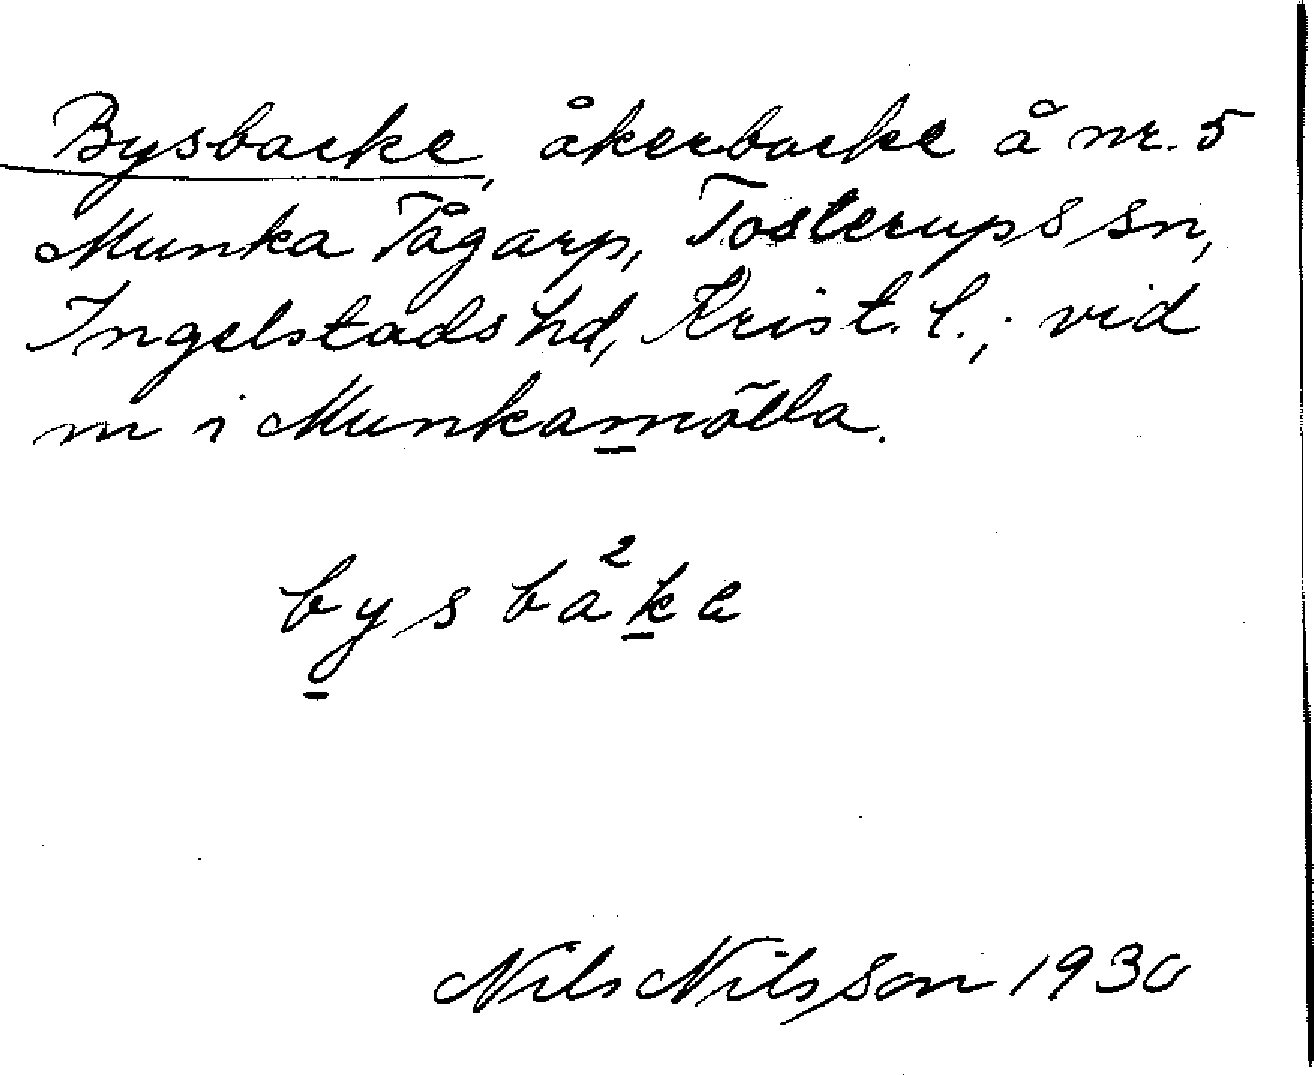 Bysbacke, åkerbacke å nr. 5
Munka Tågarp, Tosterups sn,
Ingelstads hd, Krist. l.; vid
m i Munkamölla.
bysba²ke
Nils Nilsson 1930